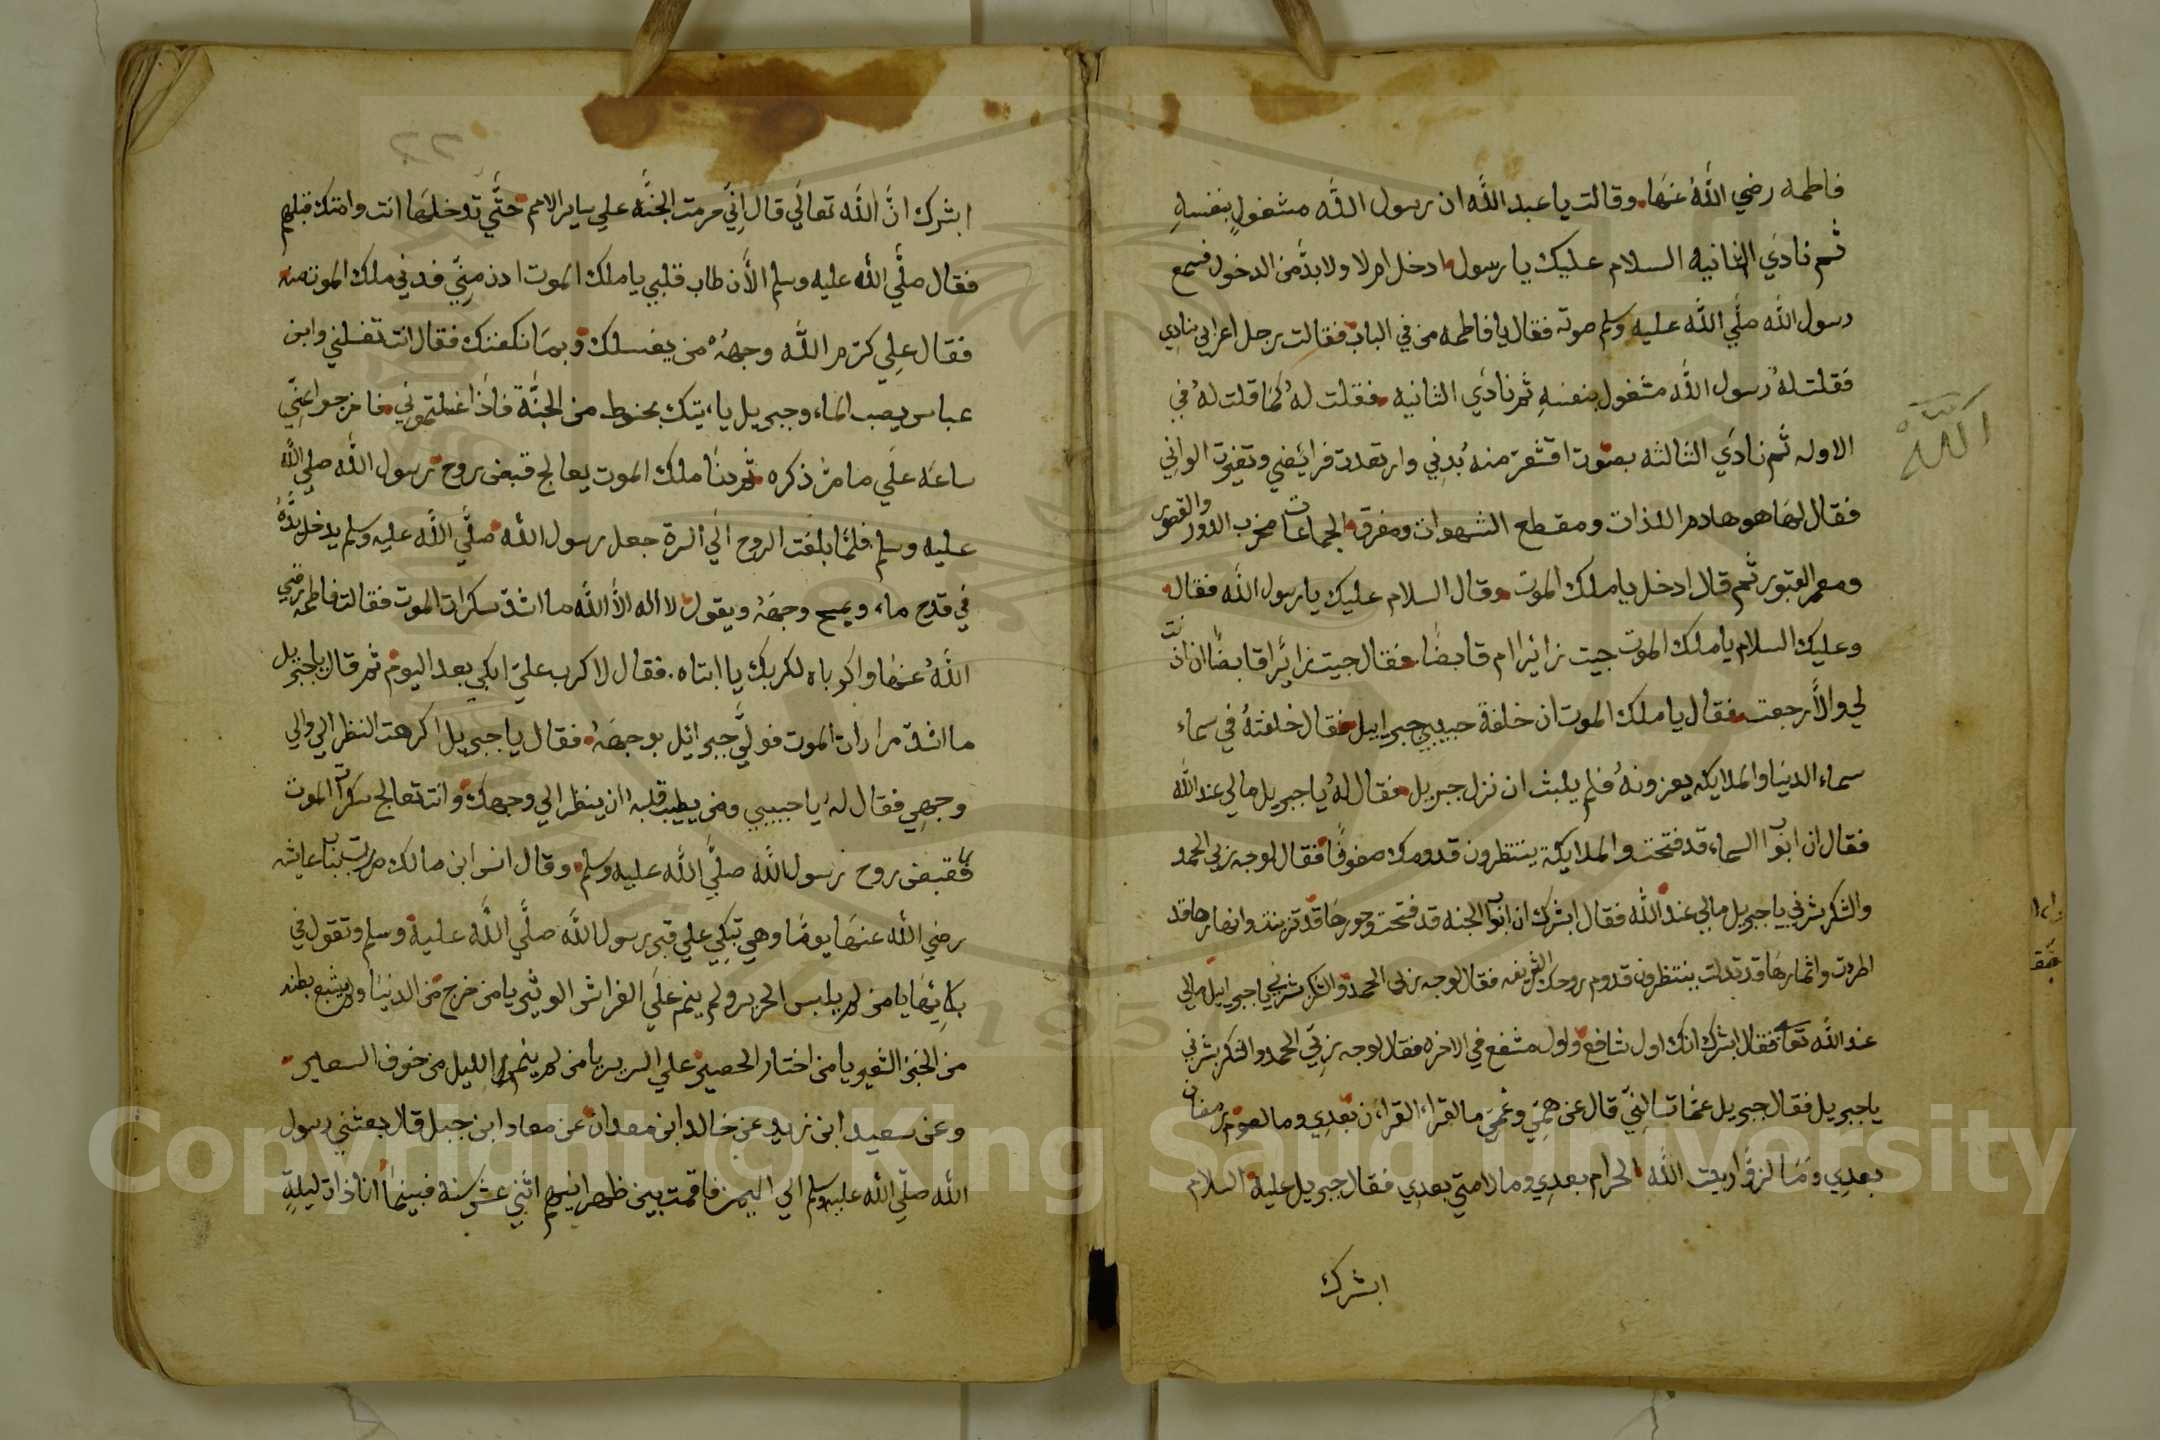 فاطمه رضي اللّٰه عنها وقالت يا عبد اللّٰه ان رسول اللّٰه مشغول بنفسه
ثم نادي الثانيه السلام عليك يا رسول ادخل ام لا ولا بد من الدخول فسمع
رسول اللّٰه صلي اللّٰه عليه وسلم صوته فقال يا فاطمه من في الباب فقالت رجل اعرابي ينادي
فقلت له رسول اللّٰه مشغول بنفسه ثم نادي الثانيه فقلت له كما قلت له في
الاوله ثم نادي الثالثه بصوت اقشعر منه بدني وارتعدت فرائضي وتغيرت الواني
فقال لها هو هادم اللذات ومقطع الشهوات ومفرق الجماعات مخرب الدور والقصور
ومعمر القبور ثم قال ادخل يا ملك الموت وقال السلام عليك يا رسول اللّٰه فقال
وعليك السلام يا ملك الموت جيت زائرا ام قابضا فقال جيت زائرا قابضا ان اذنت
لي والا رجعت فقال يا ملك الموت ان خلفة حبيبي جبراييل فقال خلفته في سماء
سماء الدنيا والملايكه يعزونه فلم يلبث ان نزل جبريل فقال له يا جبريل مالي عند اللّٰه
فقال ان ابواب السماء قد فتحت والملايكة ينتظرون قدومك صفوفا فقال لوجه ربي الحمد
والشكر بشرني يا جبريل مالي عند اللّٰه فقال ابشرك ان ابواب الجنه قد فتحت وحورها قد تزينت وانهارها قد
اطردت واثمارها قد تدلت ينتظرون قدوم روحك الشريفه فقال لوجه ربي الحمد والشكر بشرني يا جبراييل مالي
عند اللّٰه تعا فقال ابشرك انك اول شافع واول مشفع في الاخره فقال لوجه ربي الحمد والشكر بشرني
يا جبريل فقال جبريل عما تسالني قال عن همي وغمي ما لقراء القرآن بعدي وما لصوم رمضان
بعدي وما لزوار بيت اللّٰه الحرام بعدي وما لامتي بعدي فقال جبريل عليه السلام
ابشرك
ابشرك ان اللّٰه تعالي قال اني حرمت الجنه علي ساير الامم حتي تدخلها انت وامتك قبلهم
فقال صلي اللّٰه عليه وسلم الان طاب قلبي يا ملك الموت ادن مني فدني ملك الموت منه
فقال علي كرم اللّٰه وجهه من يغسلك وبما نكفنك فقال انت تغسلني وابن
عباس يصب الماء وجبريل ياتيك بحنوط من الجنة فاذا غسلتموني فاخرجوا عني
ساعه علي ما مر ذكره ثم دنا ملك الموت يعالج قبض روح رسول اللّٰه صلي اللّٰه
عليه وسلم فلما بلغت الروح الي السرة جعل رسول اللّٰه صلي اللّٰه عليه وسلم يدخل يده
في قدح ماء ويمسح وجهه ويقول لا اله الا اللّٰه ما اشد سكرات الموت فقالت فاطمه رضي
اللّٰه عنها واكرباه لكربك يا ابتاه فقال لا كرب علي ابيكي بعد اليوم ثم قال يا جبريل
ما اشد مرارات الموت فولي جبرائيل بوجهه فقال يا جبريل اكرهت النظر الي والي
وجهي فقال له يا حبيبي ومن يطيب قلبه ان ينظر الي وجهك وانت تعالج سكرات الموت
فقبض روح رسول اللّٰه صلي اللّٰه عليه وسلم وقال انس ابن مالك مررت بباب عايشه
رضي اللّٰه عنها يوما وهي تبكي علي قبر رسول اللّٰه صلي اللّٰه عليه وسلم وتقول في
بكائها يا من لم يلبس الحرير ولم ينم علي الفراش الوثير يا من خرج من الدنيا ولم يشبع بطنه
من الخبز الشعير يا من اختار الحصير علي السرير يا من لم ينم الليل من خوف السعير
وعن سعيد ابن زيد عن خالد ابن معدان عن معاد ابن جبل قال بعثني رسول
اللّٰه صلي اللّٰه عليه وسلم الي اليمن فاقمت بين ظهرانيهم اثني عشر سنه فبينما انا ذات ليلة
Copyright © King Saud University